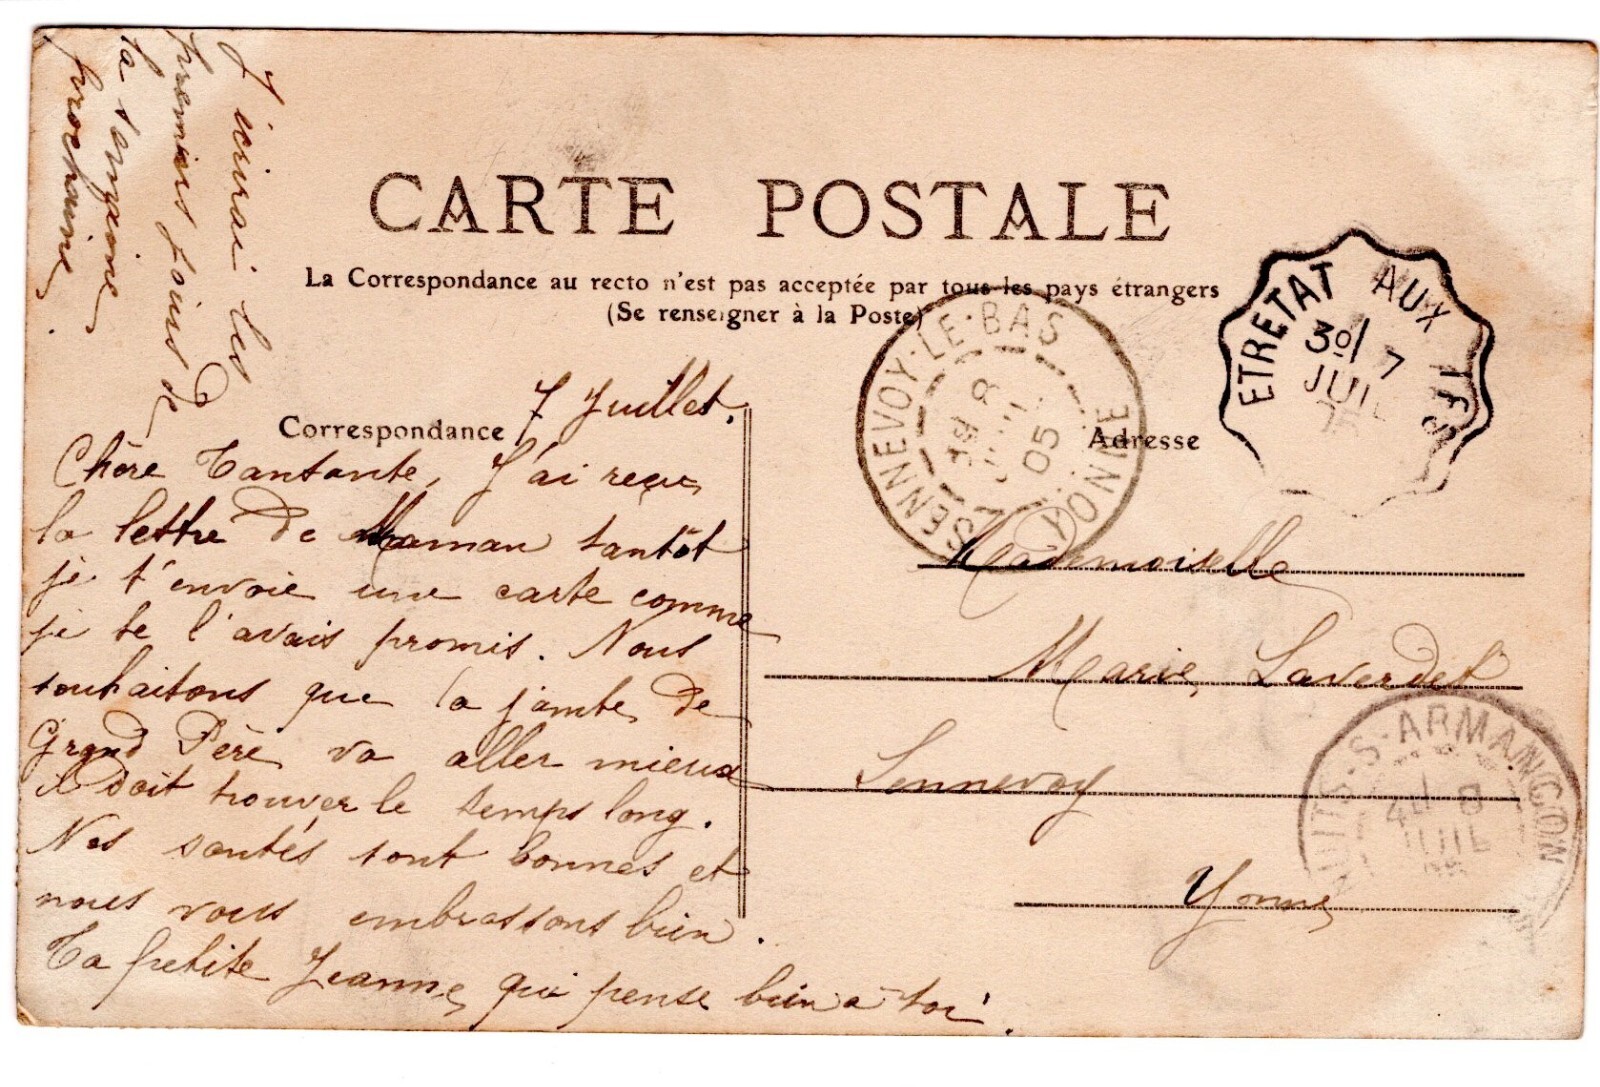 J'écrirai les
premiers jours de
la semaine
prochaine.
CARTE POSTALE
La Correspondance au recto n'est pas acceptée par tous les pays étrangers
(Se renseigner à la Poste)
ETRETAT AUX IFS
30/7
JUIL
SENNEVOY-LE-BAS
8
05
YONNE
Correspondance
Adresse
7 Juillet.
Chère Tantante, J'ai reçu
la lettre de Maman tantôt
je t'envoie une carte comme
je te l'avais promis. Nous
souhaitons que la jambe de
Grand Père va aller mieux
il doit trouver le temps long.
Nos santés sont bonnes et
nous vous embrassons bien.
Ta petite Jeanne, qui pense bien a toi.
Mademoiselle
Marie Laverdet
Sennevoy
Yonne
NUITS-S-ARMANCON
8
JUIL